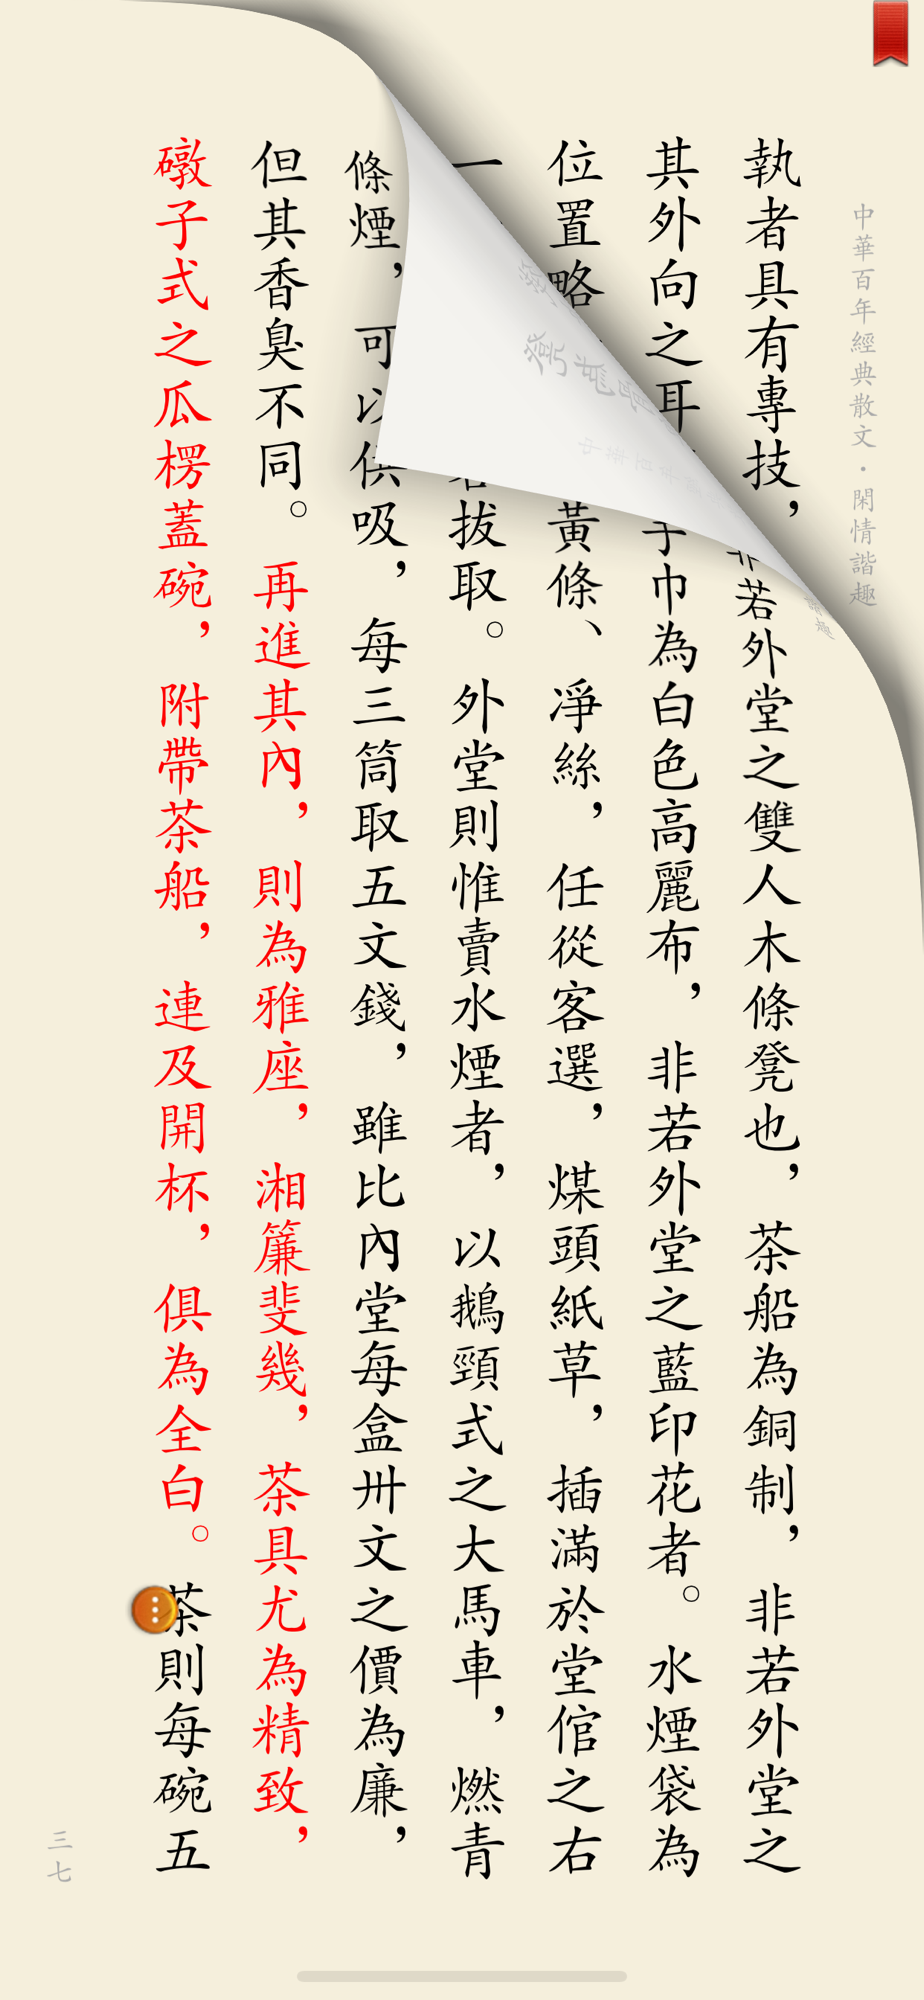 中華百年經典散文·閑情諧趣
執者具有專技，非若外堂之雙人木條凳也，茶船為銅制，非若外堂之
其外向之耳手巾為白色高麗布，非若外堂之藍印花者。水煙袋為
位置略黃條、凈絲，任從客選，煤頭紙草，插滿於堂倌之右
一若拔取。外堂則惟賣水煙者，以鵝頸式之大馬車，燃青
條煙，可以供吸，每三筒取五文錢，雖比內堂每盒卅文之價為廉，
但其香臭不同。再進其內，則為雅座，湘簾斐幾，茶具尤為精致，
礅子式之瓜楞蓋碗，附帶茶船，連及開杯，俱為全白。茶則每碗五
三七